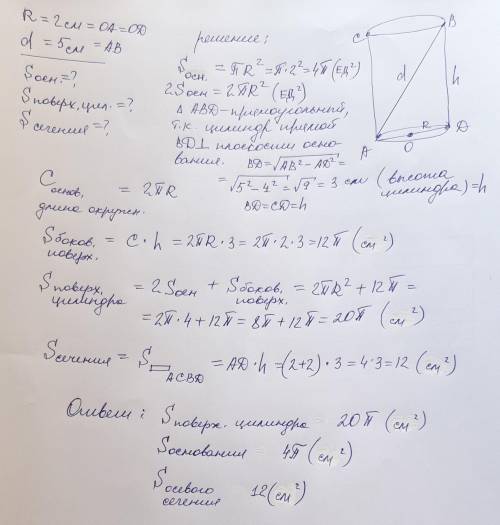 R = 2 см = OA = OD
d = 5 см = AB
Sосн. = ?
Sповерх. цил. = ?
Sсечения = ?
решение:
Sосн. = πR² = π·2² = 4π (ед²)
2Sосн = 2πR² (ед²)
Δ ABD – прямоугольный,
т.к. цилиндр прямой
BD⊥ плоскости осно-
вания. BD = √AB² – AD² =
= √5² – 4² = √9 = 3 см (высота цилиндра) = h
BD = CD = h
C
B
d
h
R
A
O
D
Cоснов. = 2πR
длина окружн.
Sбоков. поверх. = C · h = 2πR · 3 = 2π · 2 · 3 = 12π (см²)
Sповерх. цилиндра = 2Sосн + Sбоков. поверх. = 2πR² + 12π =
= 2π · 4 + 12π = 8π + 12π = 20π (см²)
Sсечения = S▭ACBD = AD · h = (2+2) · 3 = 4·3 = 12 (см²)
Ответ: Sповерх. цилиндра = 20π (см²)
Sоснования = 4π (см²)
Sосевого сечения 12 (см²)